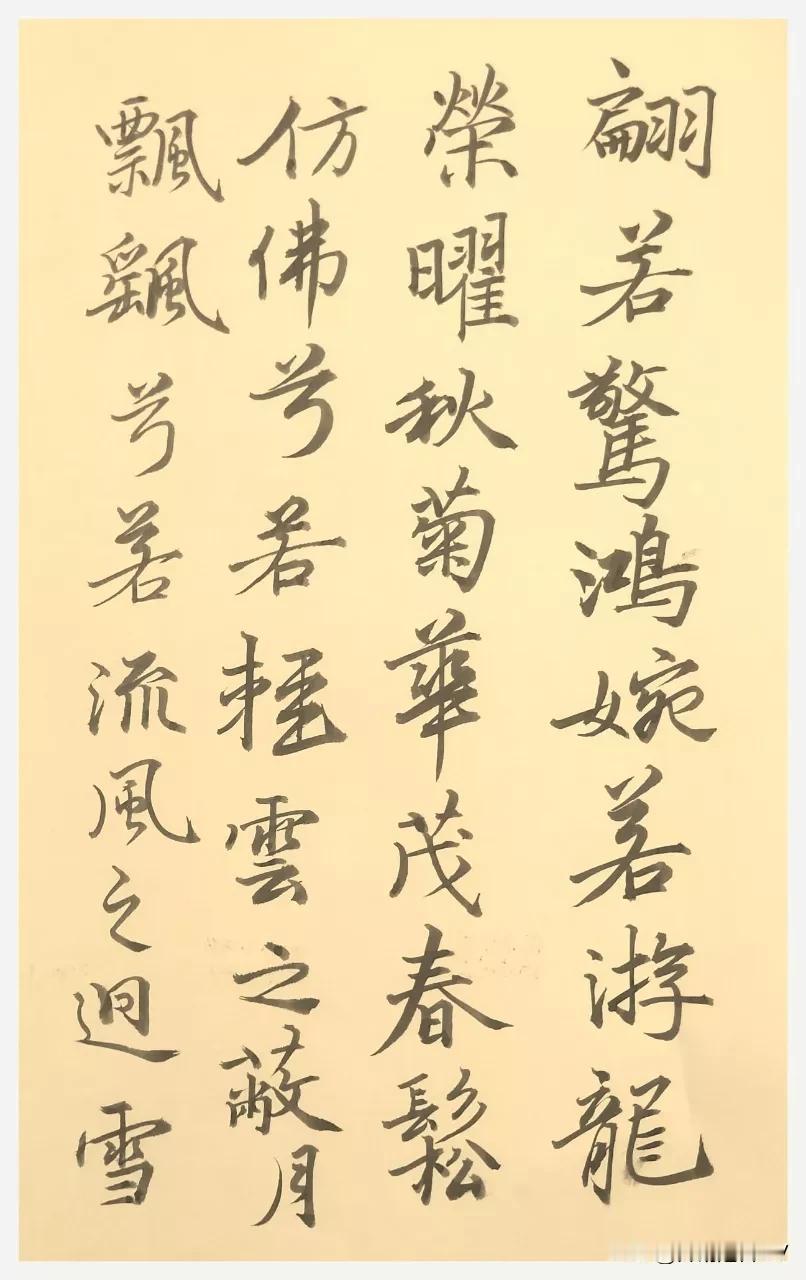 翩若驚鴻婉若游龍
榮曜秋菊華茂春鬆
仿佛兮若輕雲之蔽月
飄颻兮若流風之迴雪